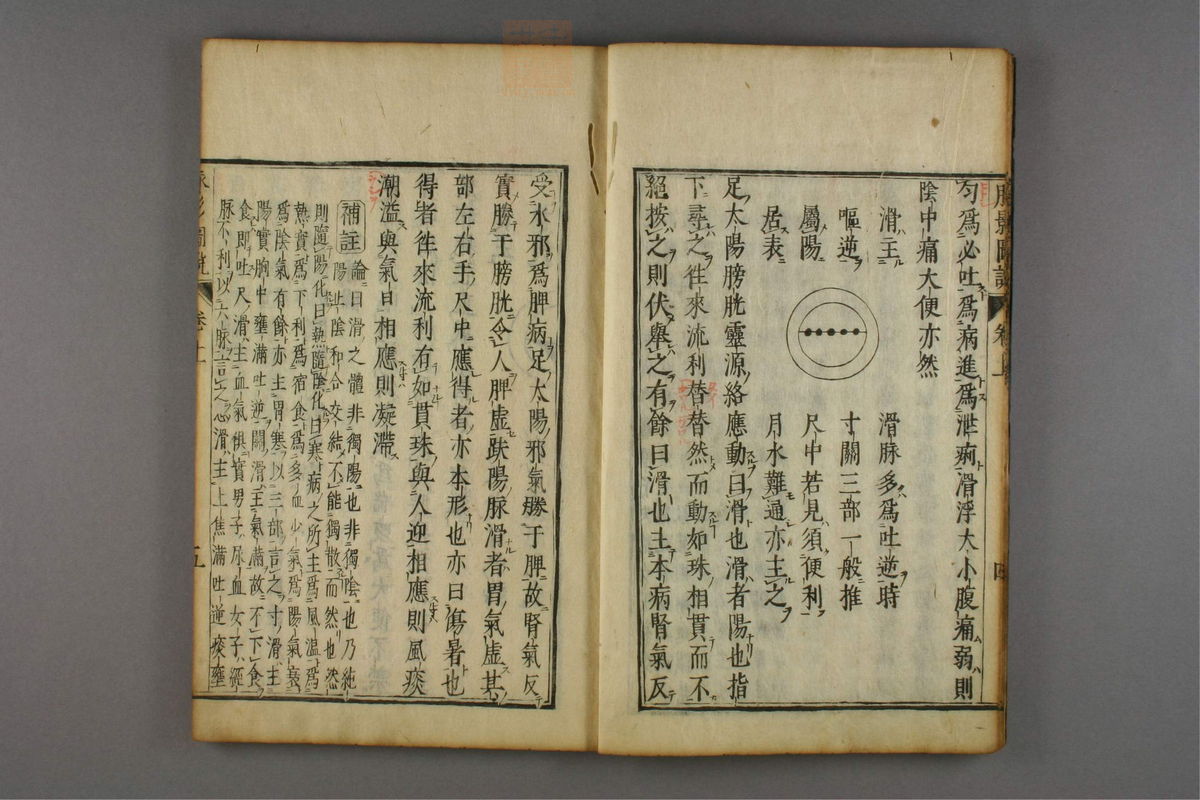 勻爲必吐爲病進爲泄痢滑浮大小腹痛弱則
陰中痛大便亦然
滑主
嘔逆
屬陽
居表
滑脉多爲吐逆時
寸關三部一般推
尺中若見須便利
月水難通亦主之
足太陽膀胱靈源絡應動曰滑也滑者陽也指
下尋之徃來流利替替然而動如珠相貫而不
絕按之則伏舉之有餘曰滑也主本病腎氣反
四
受水邪爲脾病足太陽邪氣勝于脾故腎氣反
實勝于膀胱令人脾虛趺陽脉滑者胃氣虛甚
部左右手尺中應得者亦本形也亦曰傷暑也
得者徃來流利有如貫珠與人迎相應則風痰
潮溢與氣口相應則凝滯
補註
論曰滑之體非獨陽也非獨陰也乃純
陽
陰和合交結不能獨散而然也然
則隨陽化曰熱隨陰化曰寒病之所主爲風溫爲
熱實爲下利爲宿食爲多血少氣爲陽氣衰
爲陰氣有餘亦主胃寒以三部言之寸滑主
陽實胸中壅滿吐逆關滑主氣滿故不下食
食即吐尺滑主血氣俱實男子尿血女子經
脉不利以六脉言之心滑主上焦滿吐逆痰壅
五